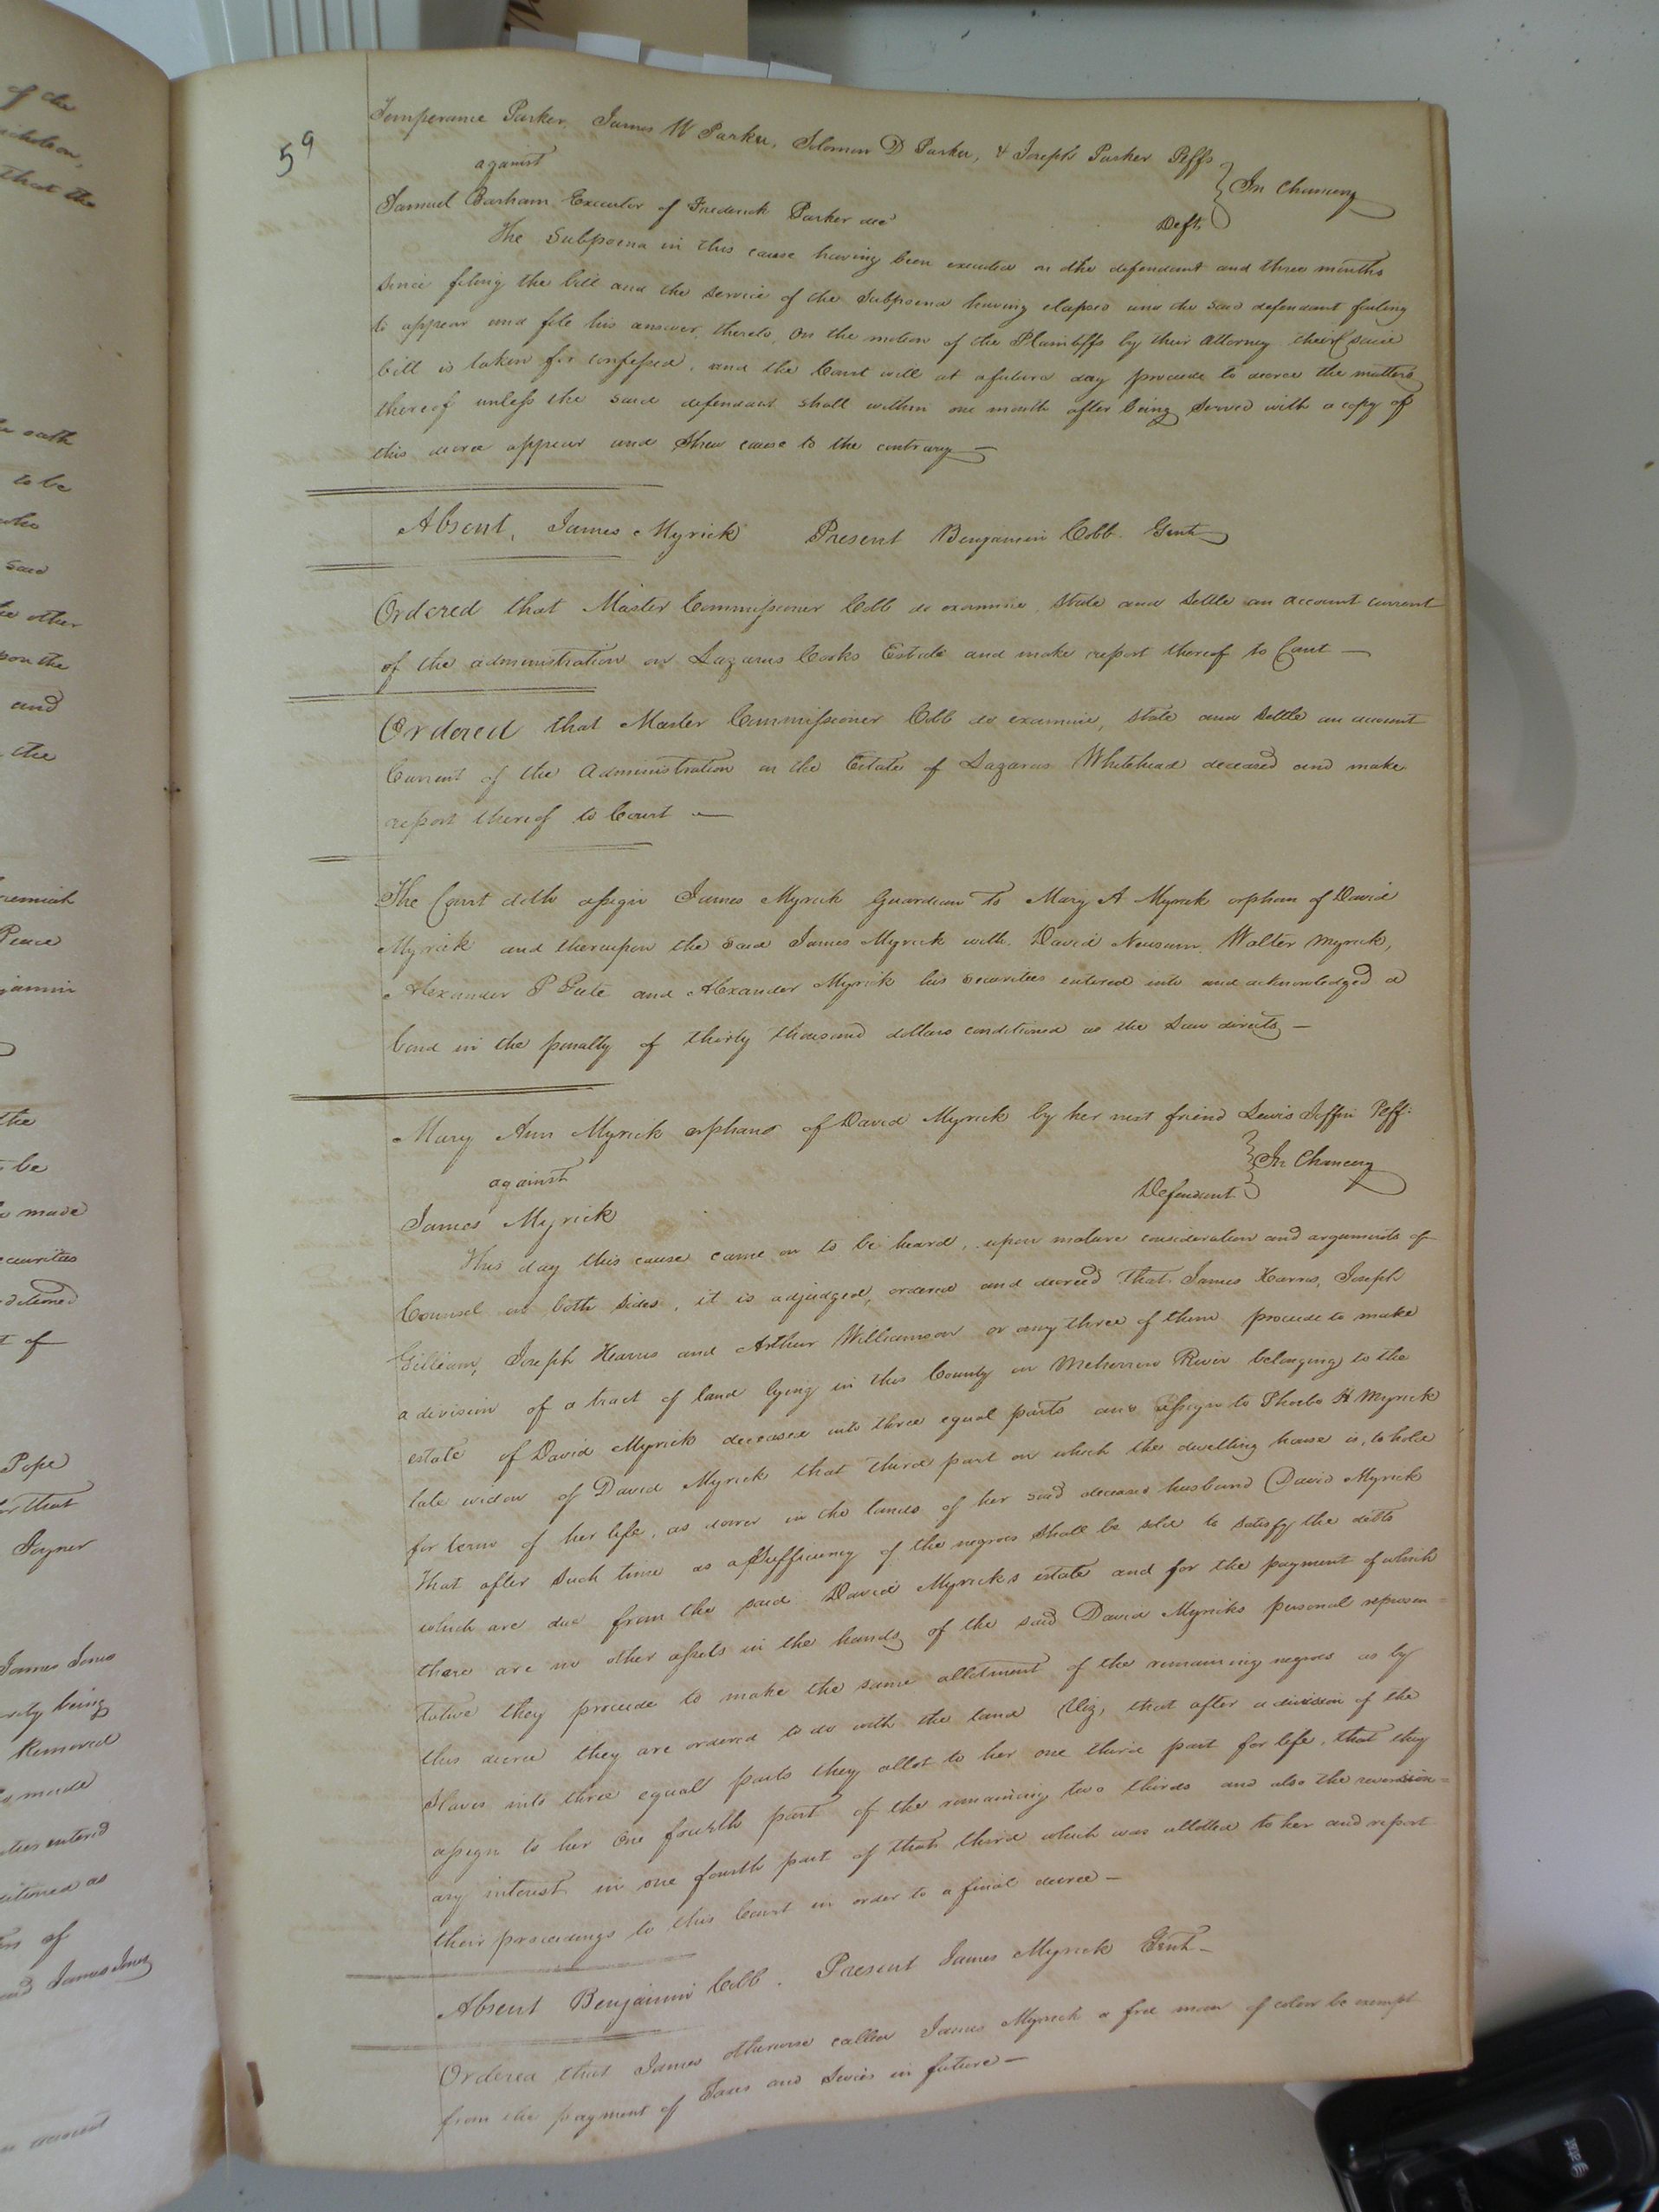 59
Temperance Parker, James W Parker, Solomon D Parker, & Joseph Parker Plffs
against
In Chancery
Samuel Barham Executor of Frederick Parker decd
Deft.
The Subpoena in this cause having been executed on the defendant and three months
since filing the bill and the service of the Subpoena having elapsed and the said defendant failing
to appear and file his answer thereto, On the motion of the Plaintiffs by their Attorney their said
bill is taken for confessed, and the Court will at a future day procede to decree the matters
thereof unless the said defendant shall within one month after being served with a copy of
this decree appear and Shew cause to the contrary —
Absent, James Myrick Present Benjamin Cobb. Gent
Ordered that Master Commissioner Cobb do examine, State and Settle an account current
of the administration on Lazarus Cooks Estate and make report thereof to Court —
Ordered that Master Commissioner Cobb do examine, State and Settle an account
Current of the Administration on the Estate of Lazarus Whitehead deceased and make
report thereof to Court —
The Court doth assign James Myrick Guardian to Mary A Myrick orphan of David
Myrick and thereupon the said James Myrick with David Newsum, Walter Myrick,
Alexander P Peete and Alexander Myrick his securities entered into and acknowledged a
bond in the penalty of thirty thousand dollars conditioned as the Law directs —
Mary Ann Myrick orphan of David Myrick by her next friend Lewis Joffin Plff.
In Chancery
against
Defendant.
James Myrick
This day this cause came on to be heard, upon mature consideration and arguments of
Counsel on both Sides, it is adjudged, ordered and decreed That James Harris, Joseph
Gilliam, Joseph Harris and Arthur Williamson or any three of them procede to make
a division of a tract of land lying in this County on Meherrin River belonging to the
estate of David Myrick deceased into three equal parts and assign to Phoebe H Myrick
late widow of David Myrick that third part on which the dwelling house is, to hold
for term of her life, as dower in the lands of her said deceased husband David Myrick
that after such time as a Sufficiency of the negroes Shall be sold to satisfy the debts
which are due from the said David Myricks estate and for the payment of which
there are no other assets in the hands of the said David Myricks personal represen=
tative they procede to make the same allotment of the remaining negroes as by
this decree they are ordered to do with the land (Viz, that after a division of the
Slaves into three equall parts they allot to her one third part for life, that they
assign to her One fourth part of the remaining two thirds and also the reversion=
ary interest in one fourth part of that third which was allotted to her and report
their proceedings to this Court in order to a final decree —
Absent Benjamin Cobb. Present James Myrick Gent —
Ordered that James otherwise called James Myrick a free man of color be exempt
from the payment of Taxes and Levies in future —
of the
that the
oath
to be
who
said
other
upon the
and
the
Peace
the
be
made
securities
of
Pope
that
Joyner
James Jones
being
Removed
made
entered
as
of
James Jones
account